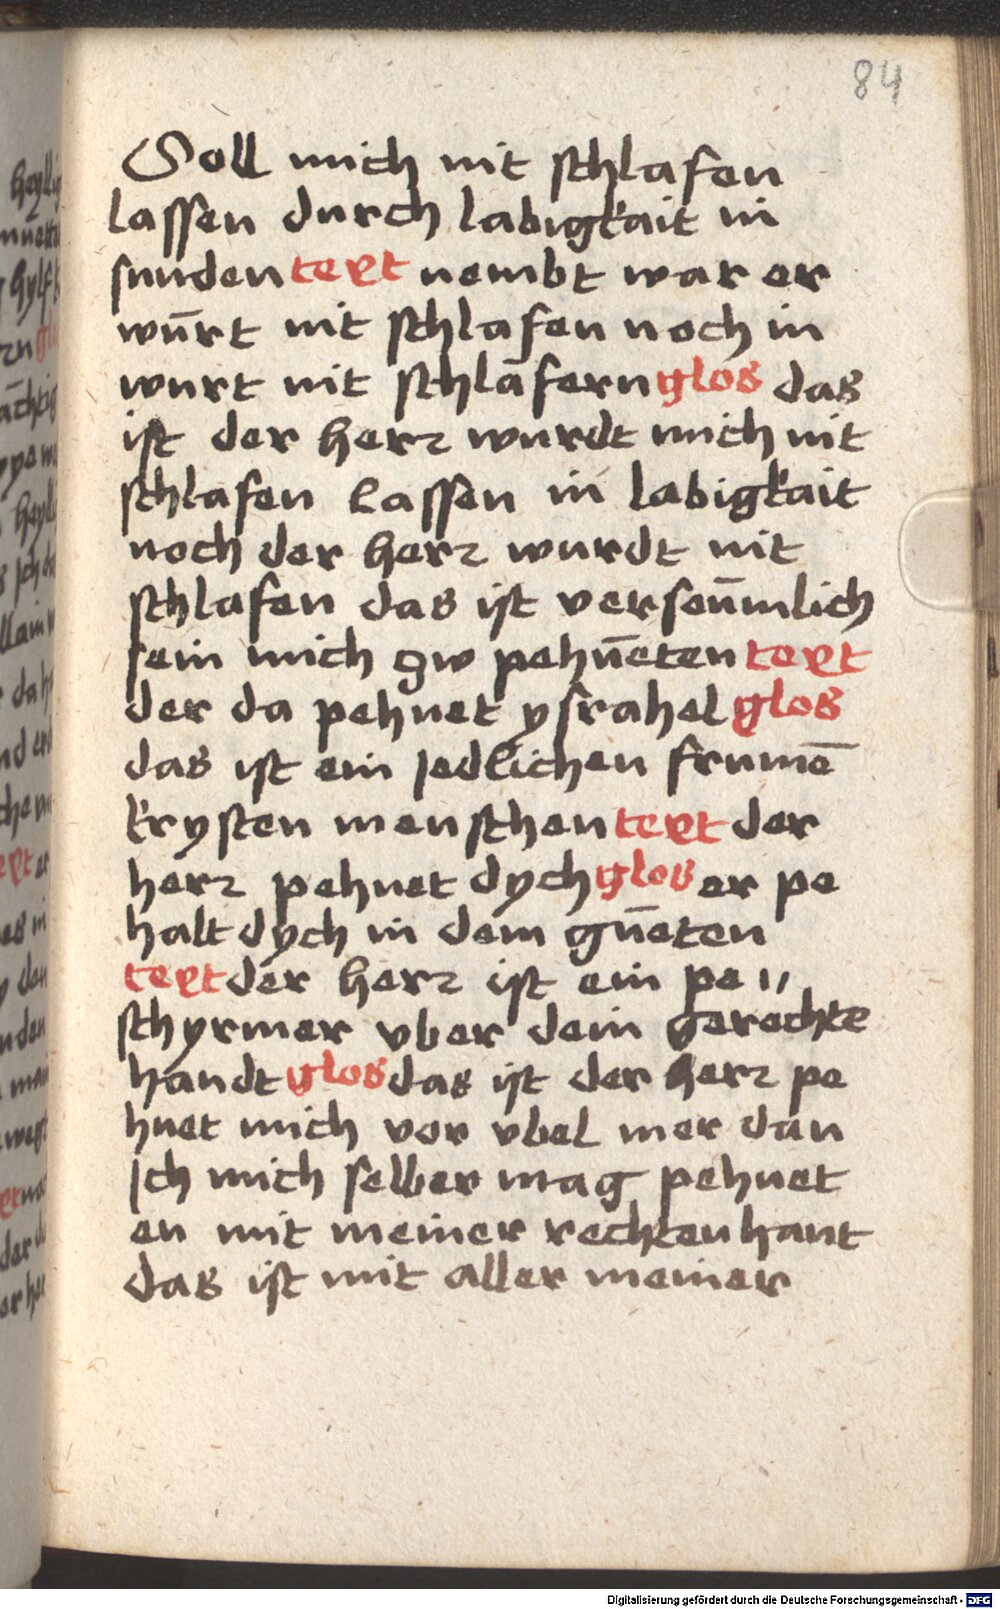 84
Soll mich nit schlafen
lassen durch labigkait in
sunden text nembt war er
wūrt nit schlafen noch in
wurt nit schlāfern glos das
ist der herr wurdt mich nit
schlafen lassen in labigkait
noch der herr wurdt nit
schlafen das ist verseūmlich
sein mich gw pehūeten text
der da pehuet ysrahel glos
das ist ein Jedlichen frumē
krysten menschen text der
herr pehuet dych glos er pe
halt dych in dem gūeten
text der herr ist ein pe〃
schyrmer vber dein gerechte
handt glos das ist der herr pe
huet mich vor vbel mer dan
Jch mich selber mag pehuet
en mit meiner rechten hant
das ist mit aller meiner
Digitalisierung gefördert durch die Deutsche Forschungsgemeinschaft - DFG